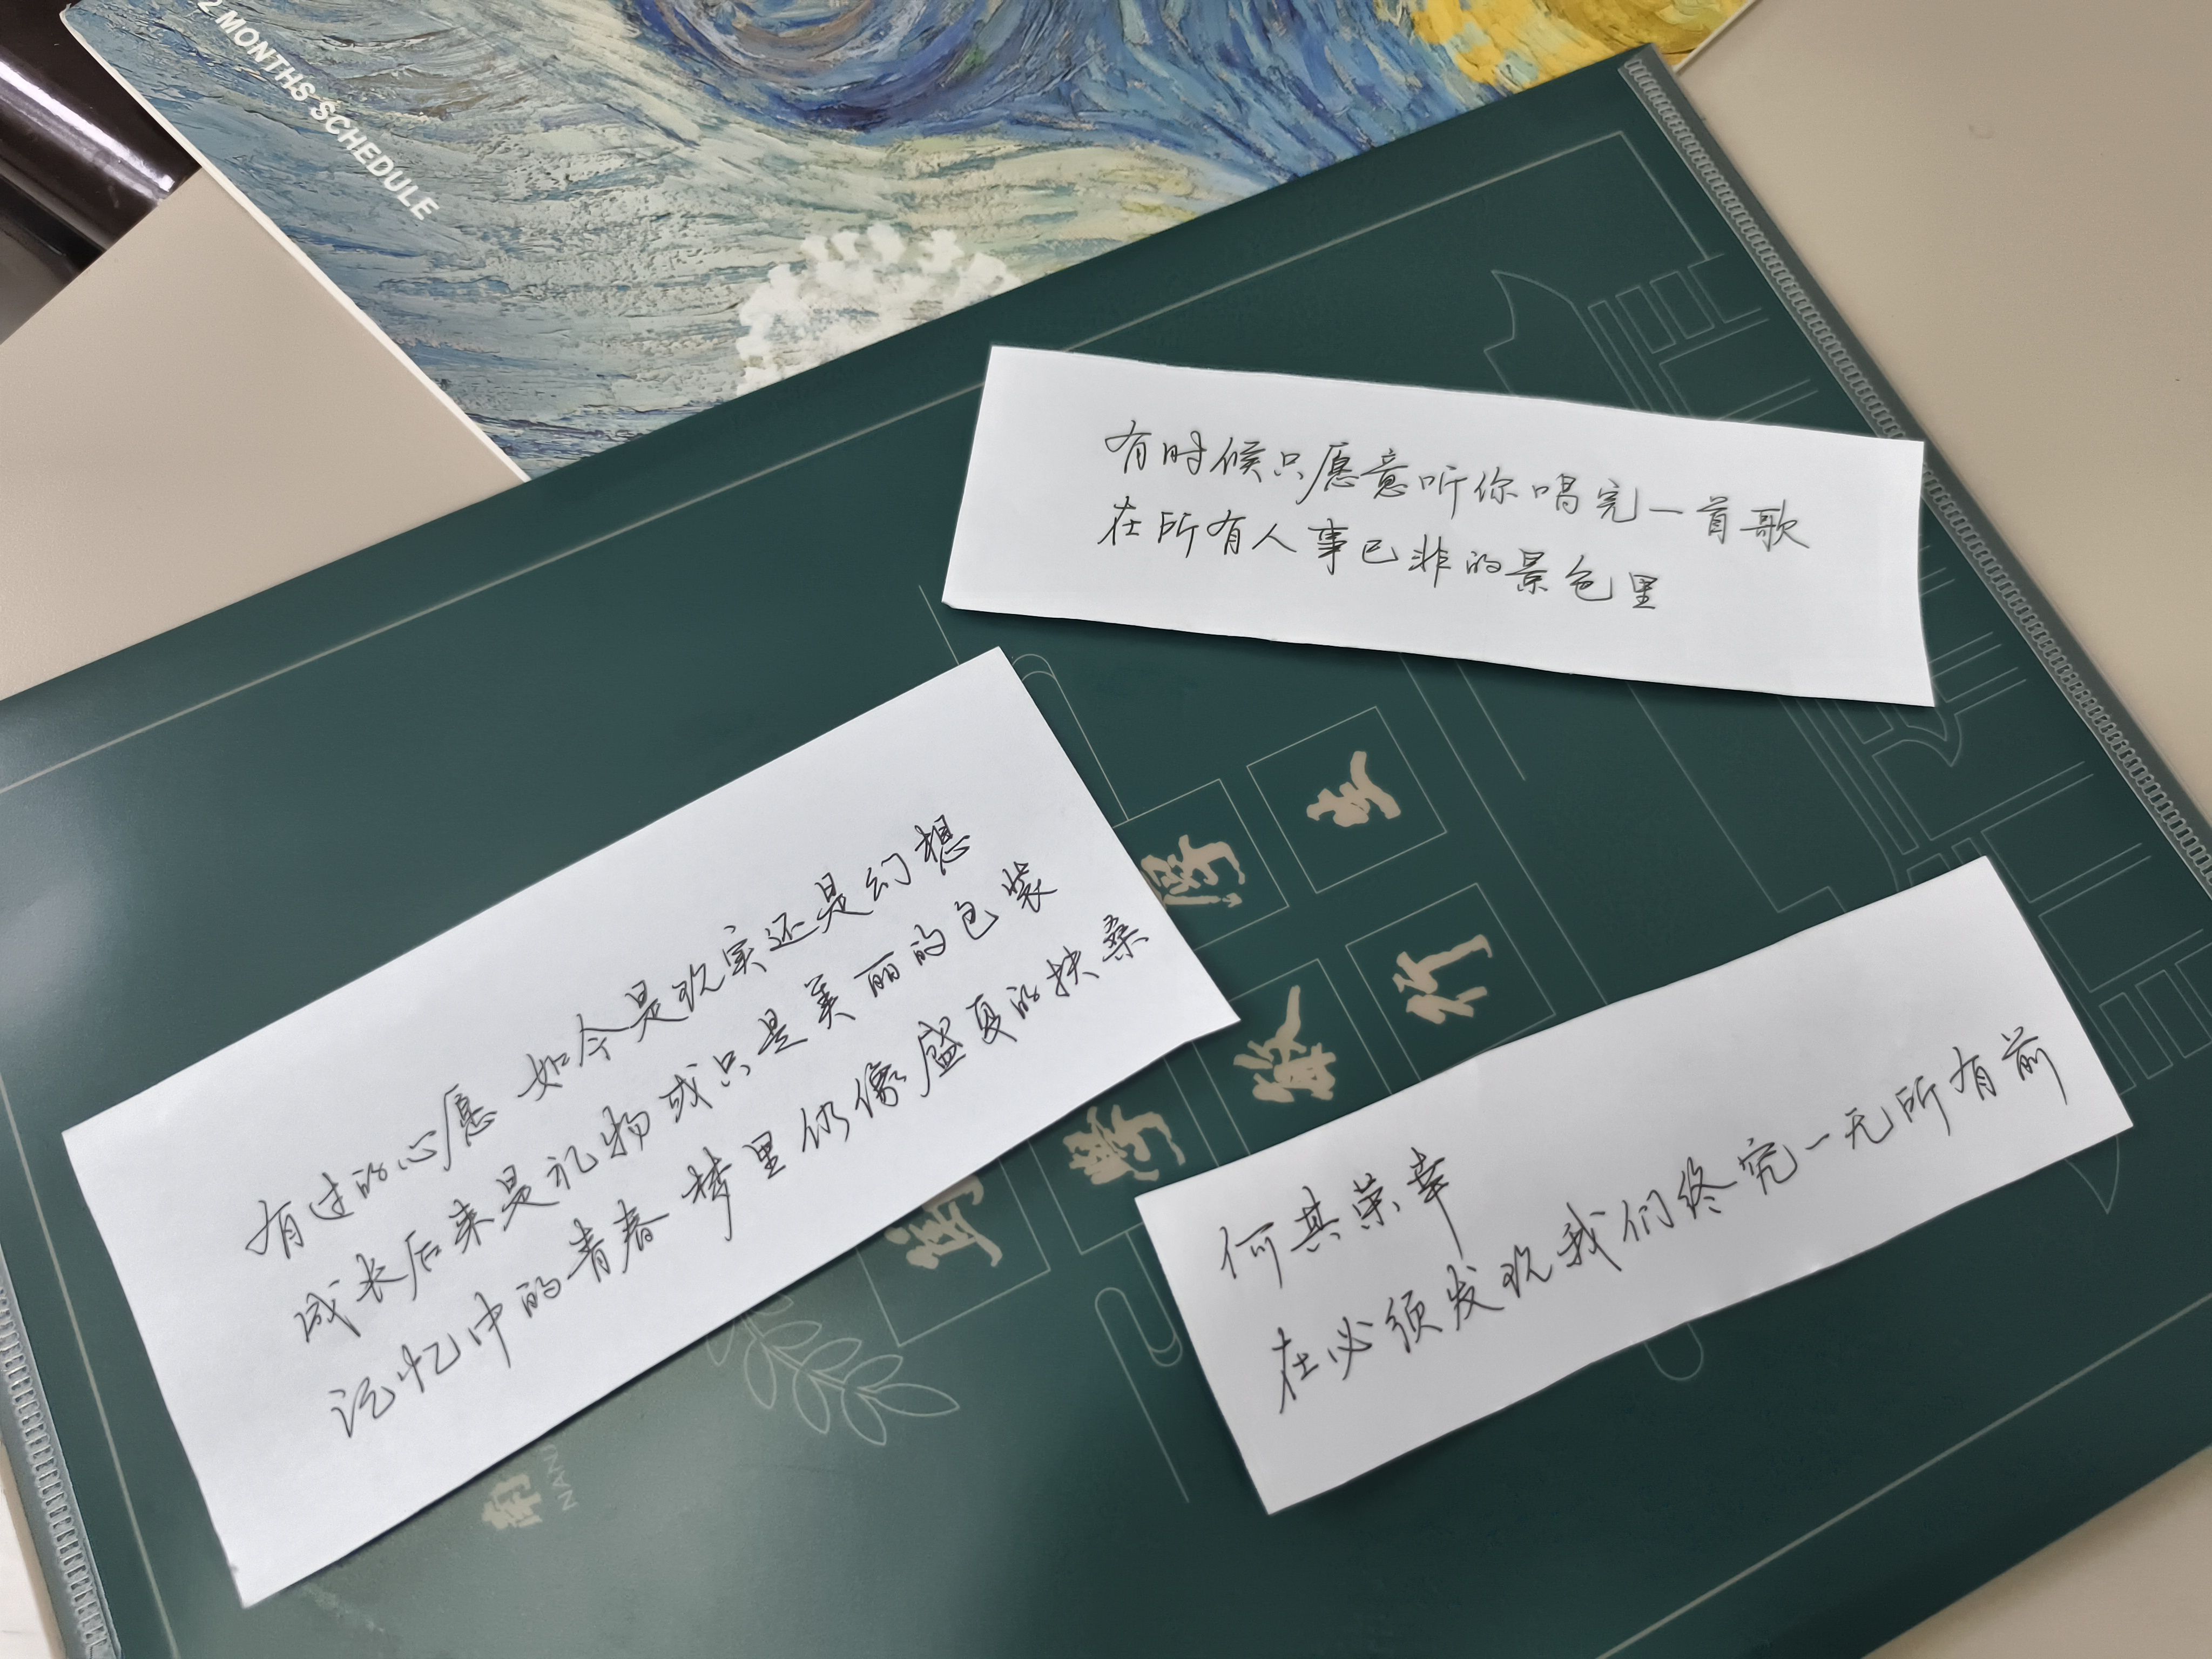 2 MONTHS SCHEDULE
有时候只愿意听你唱完一首歌
在所有人事已非的景色里
有过的心愿 如今是现实还是幻想
成长后来是礼物或只是美丽的包装
记忆中的青春 梦里仍像盛夏的扶桑
何其荣幸
在必须发现我们终究一无所有前
敦行
南
NAN